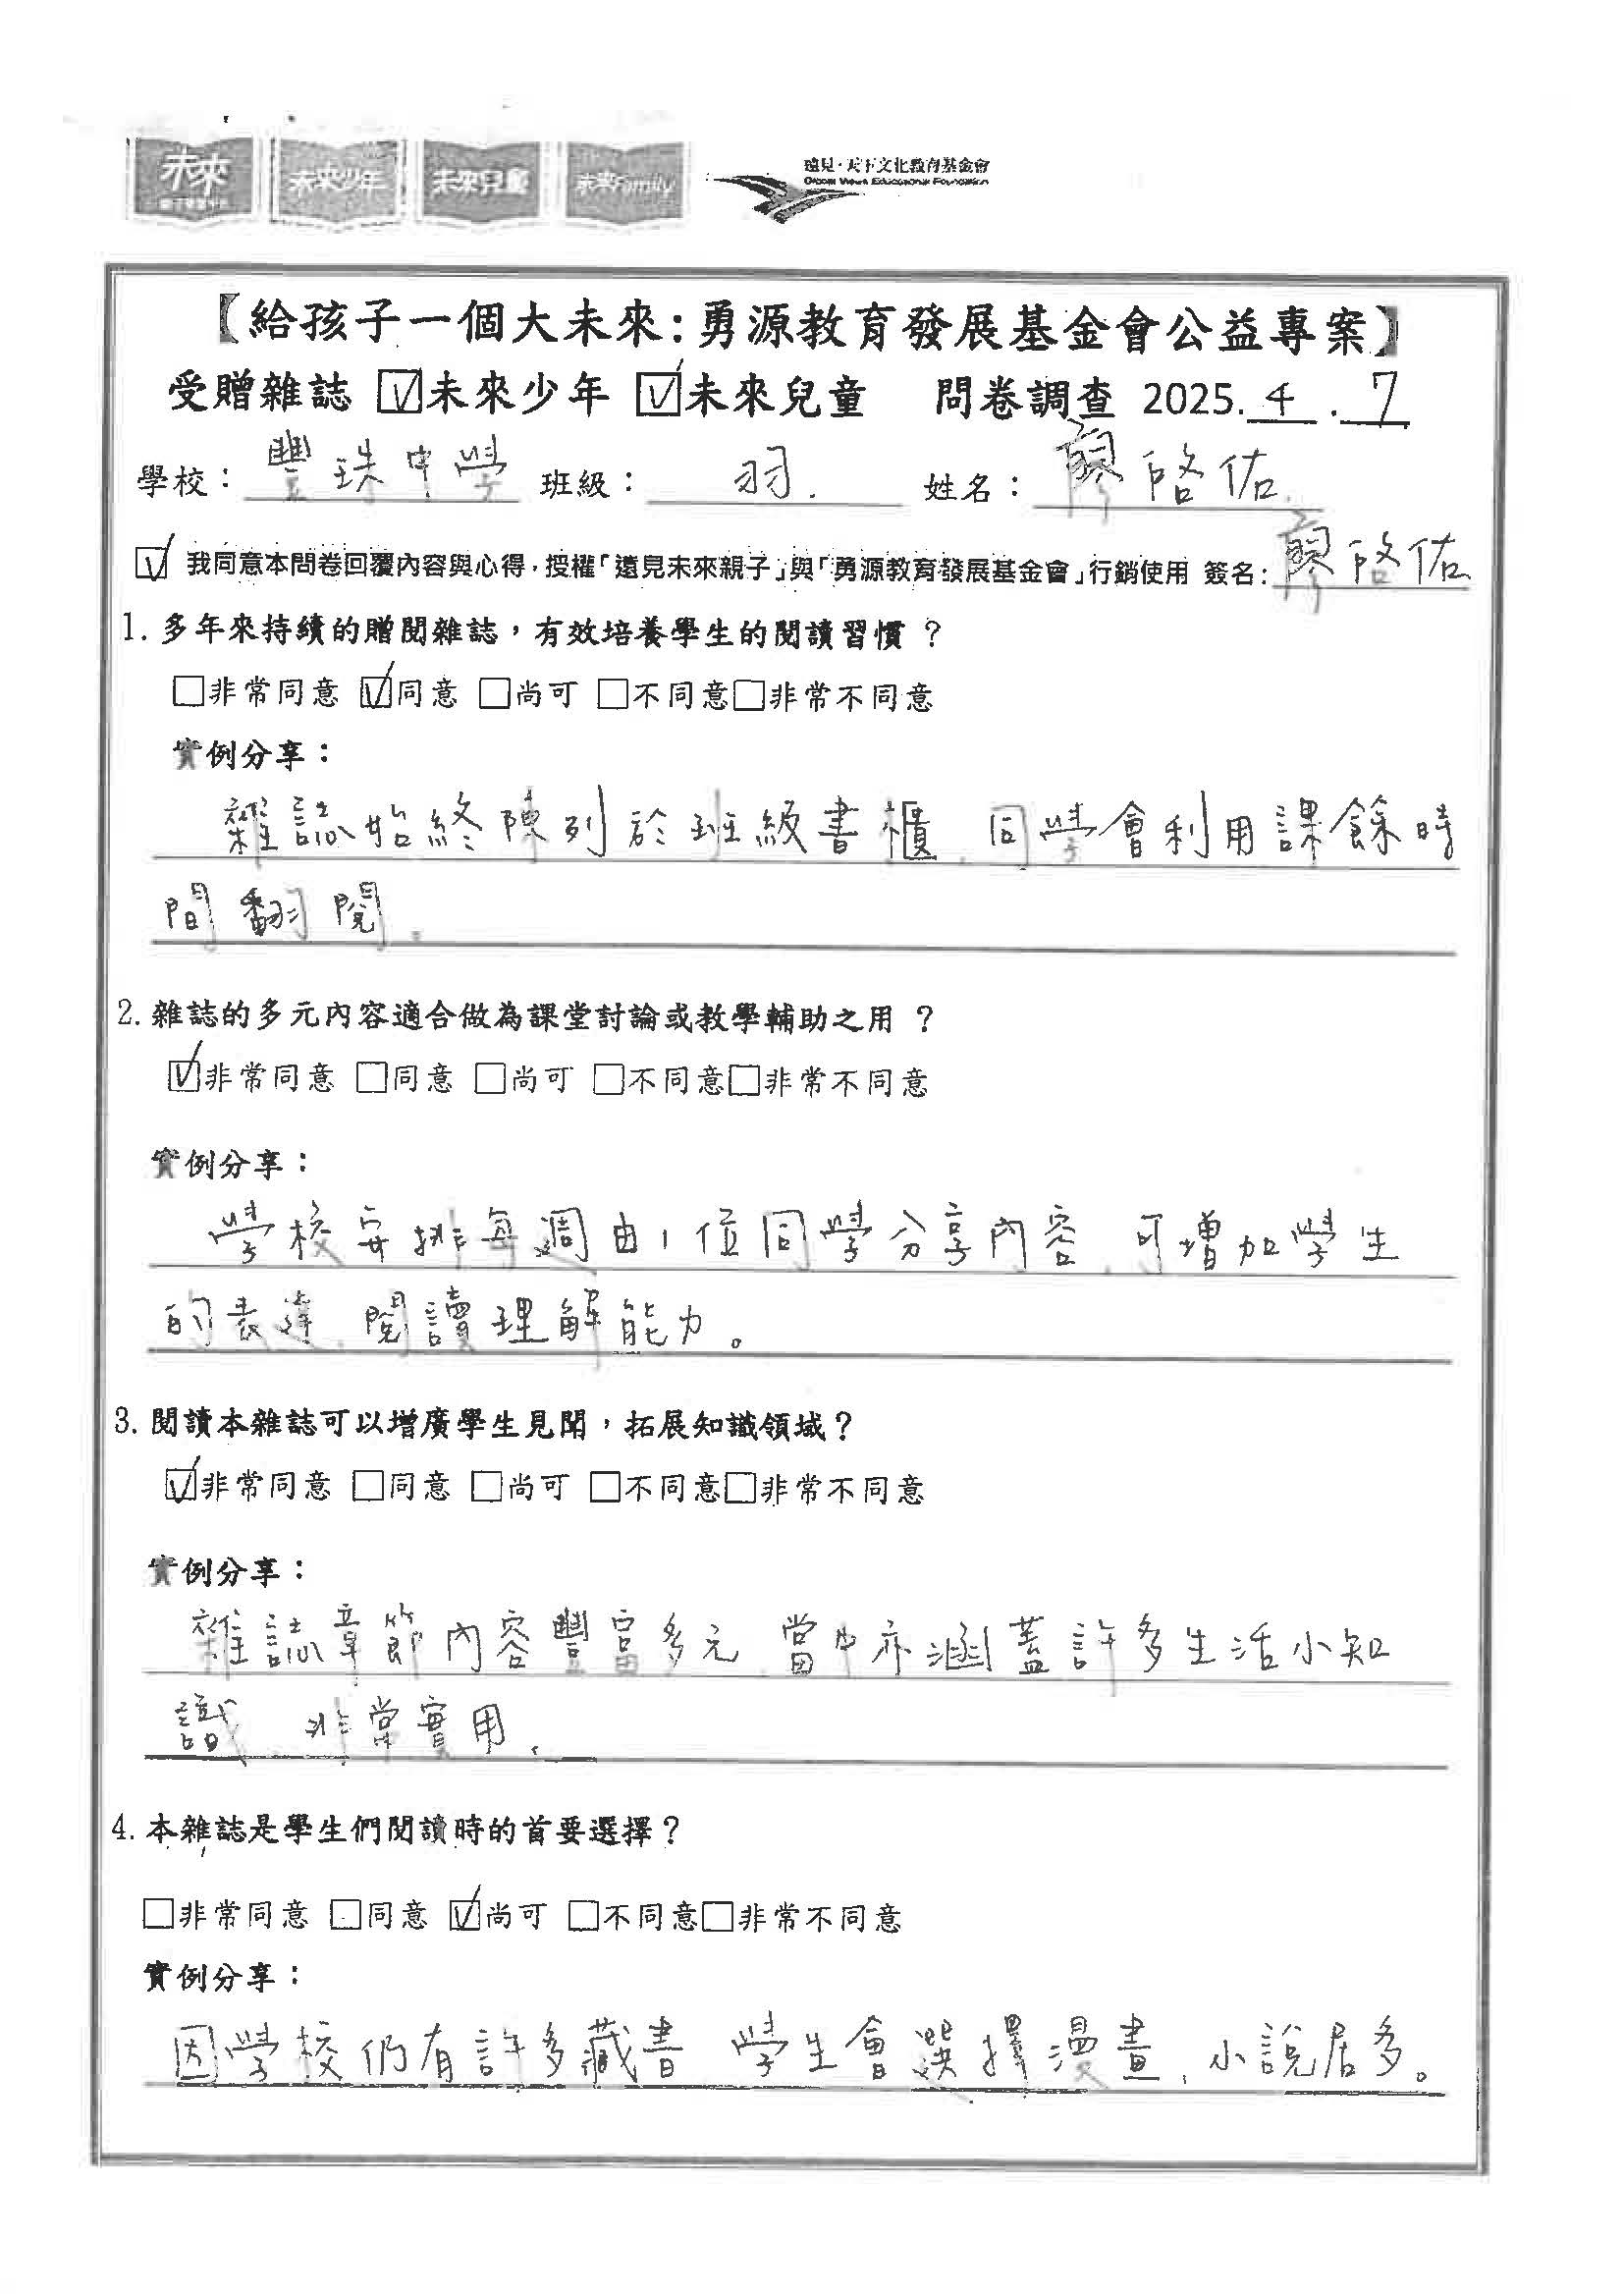 未來
未來少年
未來兒童
未來Family
遠見‧天下文化教育基金會
Global Views Educational Foundation
【給孩子一個大未來:勇源教育發展基金會公益專案】
受贈雜誌 ☑未來少年 ☑未來兒童 問卷調查 2025.4.7
學校:豐珠中學 班級:羽. 姓名:廖啓佑.
☑ 我同意本問卷回覆內容與心得,授權「遠見未來親子」與「勇源教育發展基金會」行銷使用 簽名:廖啓佑
1. 多年來持續的贈閱雜誌,有效培養學生的閱讀習慣?
□非常同意 ☑同意 □尚可 □不同意□非常不同意
實例分享:
雜誌始終陳列於班級書櫃,同學會利用課餘時
間翻閱。
2. 雜誌的多元內容適合做為課堂討論或教學輔助之用?
☑非常同意 □同意 □尚可 □不同意□非常不同意
實例分享:
學校安排每週由1位同學分享內容,可增加學生
的表達、閱讀理解能力。
3. 閱讀本雜誌可以增廣學生見聞,拓展知識領域?
☑非常同意 □同意 □尚可 □不同意□非常不同意
實例分享:
雜誌章節內容豐富多元,當中亦涵蓋許多生活小知
識,非常實用。
4. 本雜誌是學生們閱讀時的首要選擇?
□非常同意 □同意 ☑尚可 □不同意□非常不同意
實例分享:
因學校仍有許多藏書,學生會選擇漫畫、小說居多。